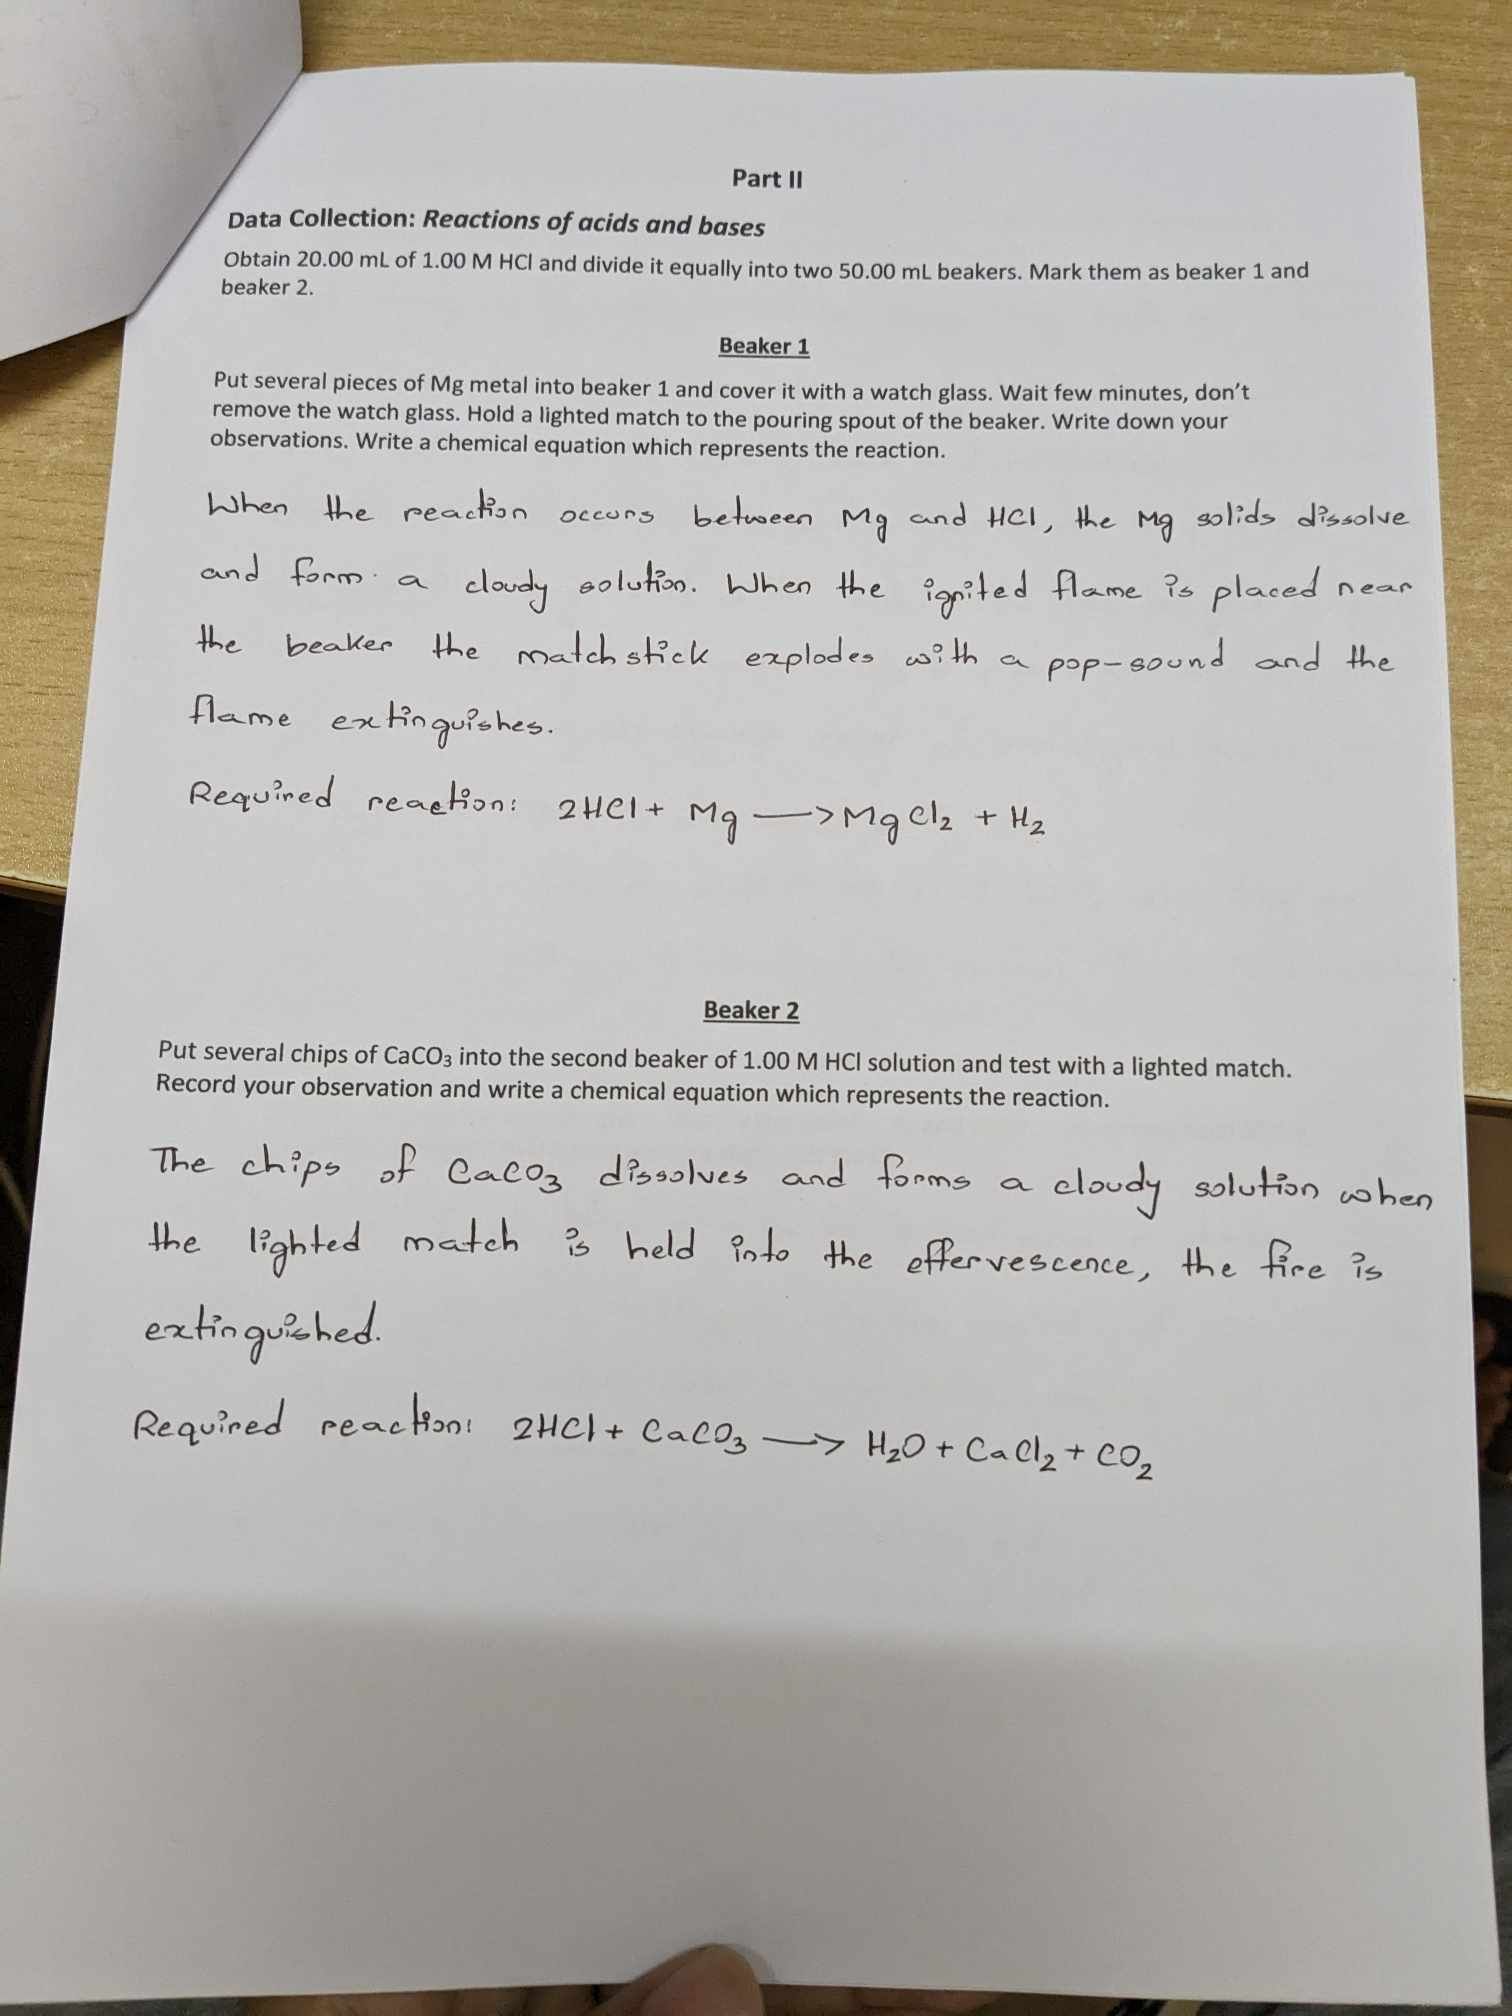 Part II
Data Collection: Reactions of acids and bases
Obtain 20.00 mL of 1.00 M HCl and divide it equally into two 50.00 mL beakers. Mark them as beaker 1 and
beaker 2.
Beaker 1
Put several pieces of Mg metal into beaker 1 and cover it with a watch glass. Wait few minutes, don't
remove the watch glass. Hold a lighted match to the pouring spout of the beaker. Write down your
observations. Write a chemical equation which represents the reaction.
When the reaction occurs between Mg and HCl, the Mg solids dissolve
and form a cloudy solution. When the ignited flame is placed near
the beaker the matchstick explodes with a pop-sound and the
flame extinguishes.
Required reaction: 2HCl + Mg —> MgCl₂ + H₂
Beaker 2
Put several chips of CaCO₃ into the second beaker of 1.00 M HCl solution and test with a lighted match.
Record your observation and write a chemical equation which represents the reaction.
The chips of CaCO₃ dissolves and forms a cloudy solution when
the lighted match is held into the effervescence, the fire is
extinguished.
Required reaction: 2HCl + CaCO₃ —> H₂O + CaCl₂ + CO₂